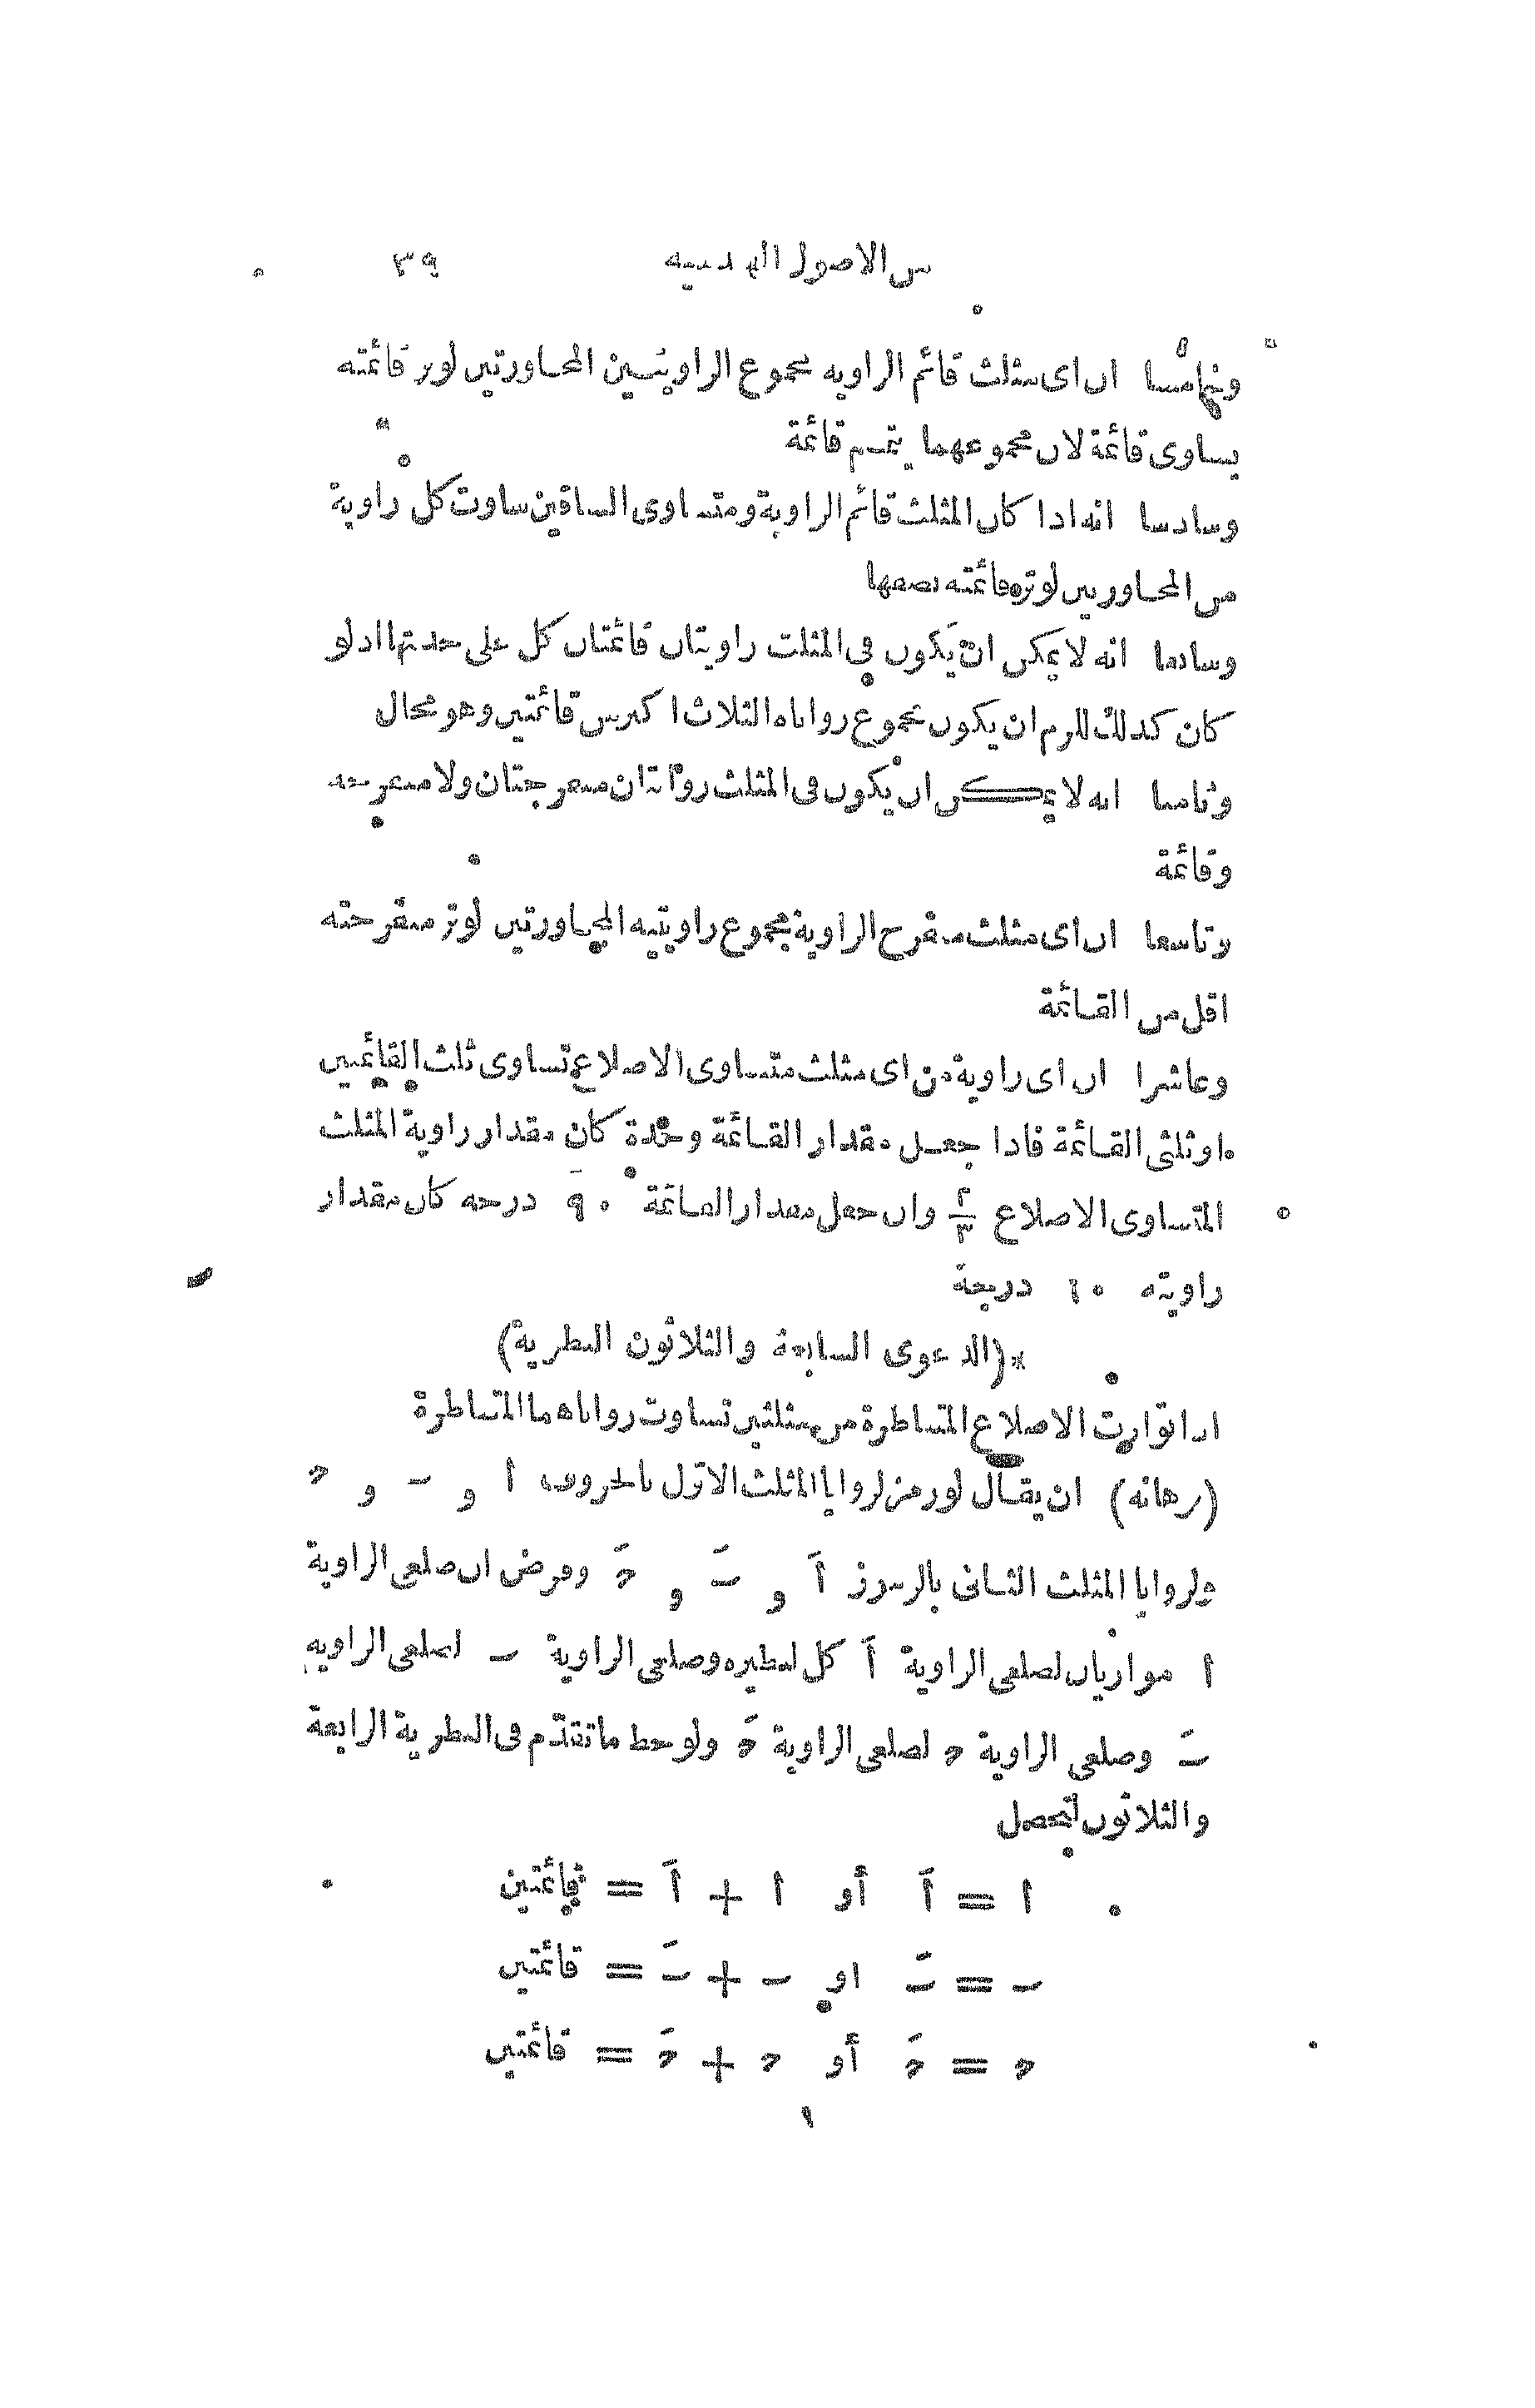 من الاصول الهندسيه ٣٩
وخامسا ان اى مثلث قائم الزاويه مجموع الزاويتين المجاورتين لوتر قائمته
يساوى قائمة لان مجموعهما يتمم قائمة
وسادسا انه اذا كان المثلث قائم الزاوية ومتساوى الساقين ساوت كل زاوية
من المجاورتين لوتر قائمته نصفها
وسابعا انه لا يمكن ان يكون فى المثلث زاويتان قائمتان كل على حدتها اذ لو
كان كذلك للزم ان يكون مجموع زواياه الثلاث اكبر من قائمتين وهو محال
وثامنا انه لا يمكن ان يكون فى المثلث زاويتان منفرجتان ولا منفرجه
وقائمة
وتاسعا ان اى مثلث منفرج الزاوية مجموع زاويتيه المجاورتين لوتر منفرجته
اقل من القائمة
وعاشرا ان اى زاوية من اى مثلث متساوى الاضلاع تساوى ثلث القائمتين
اوثلثى القائمة فاذا جعل مقدار القائمة وحدة كان مقدار زاوية المثلث
المتساوى الاضلاع ٢/٣ وان جعل مقدار القائمة ٩٠ درجه كان مقدار
زاويته ٦٠ درجة
*(الدعوى السابعة والثلاثون النظرية)
اذا توازت الاضلاع المتناظرة من مثلثين تساوت زواياهما المتناظرة
(برهانه) ان يقال لو رمز لزوايا المثلث الاول بالحروف أ و ب و ح
ولزوايا المثلث الثانى بالرموز أَ و بَ و حَ وفرض ان ضلعى الزاوية
أ موازيان لضلعى الزاوية أَ كل لنظيره وضلعى الزاوية ب لضلعى الزاويه
بَ وضلعى الزاوية ح لضلعى الزاوية حَ ولوحظ ما تقدّم فى النظرية الرابعة
والثلاثون لتحصل
أ = أَ أو أ + أَ = قائمتين
ب = بَ او ب + بَ = قائمتين
ح = حَ أو ح + حَ = قائمتين